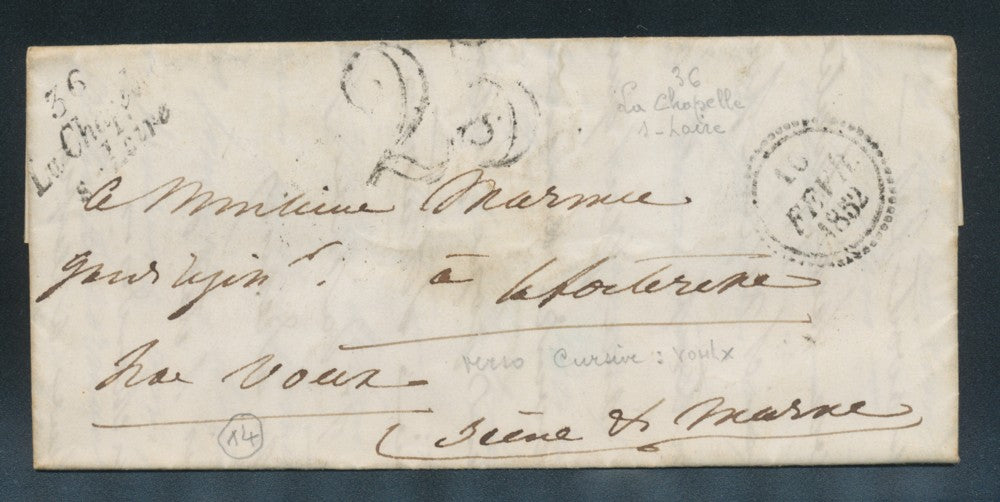 36
La Chapelle
s. Loire
25
36
La Chapelle
s-Loire
16
FEVR.
1852
a Monsieur Marnue
à
rue voux
verso Cursive : voulx
14
(Seine & Marne